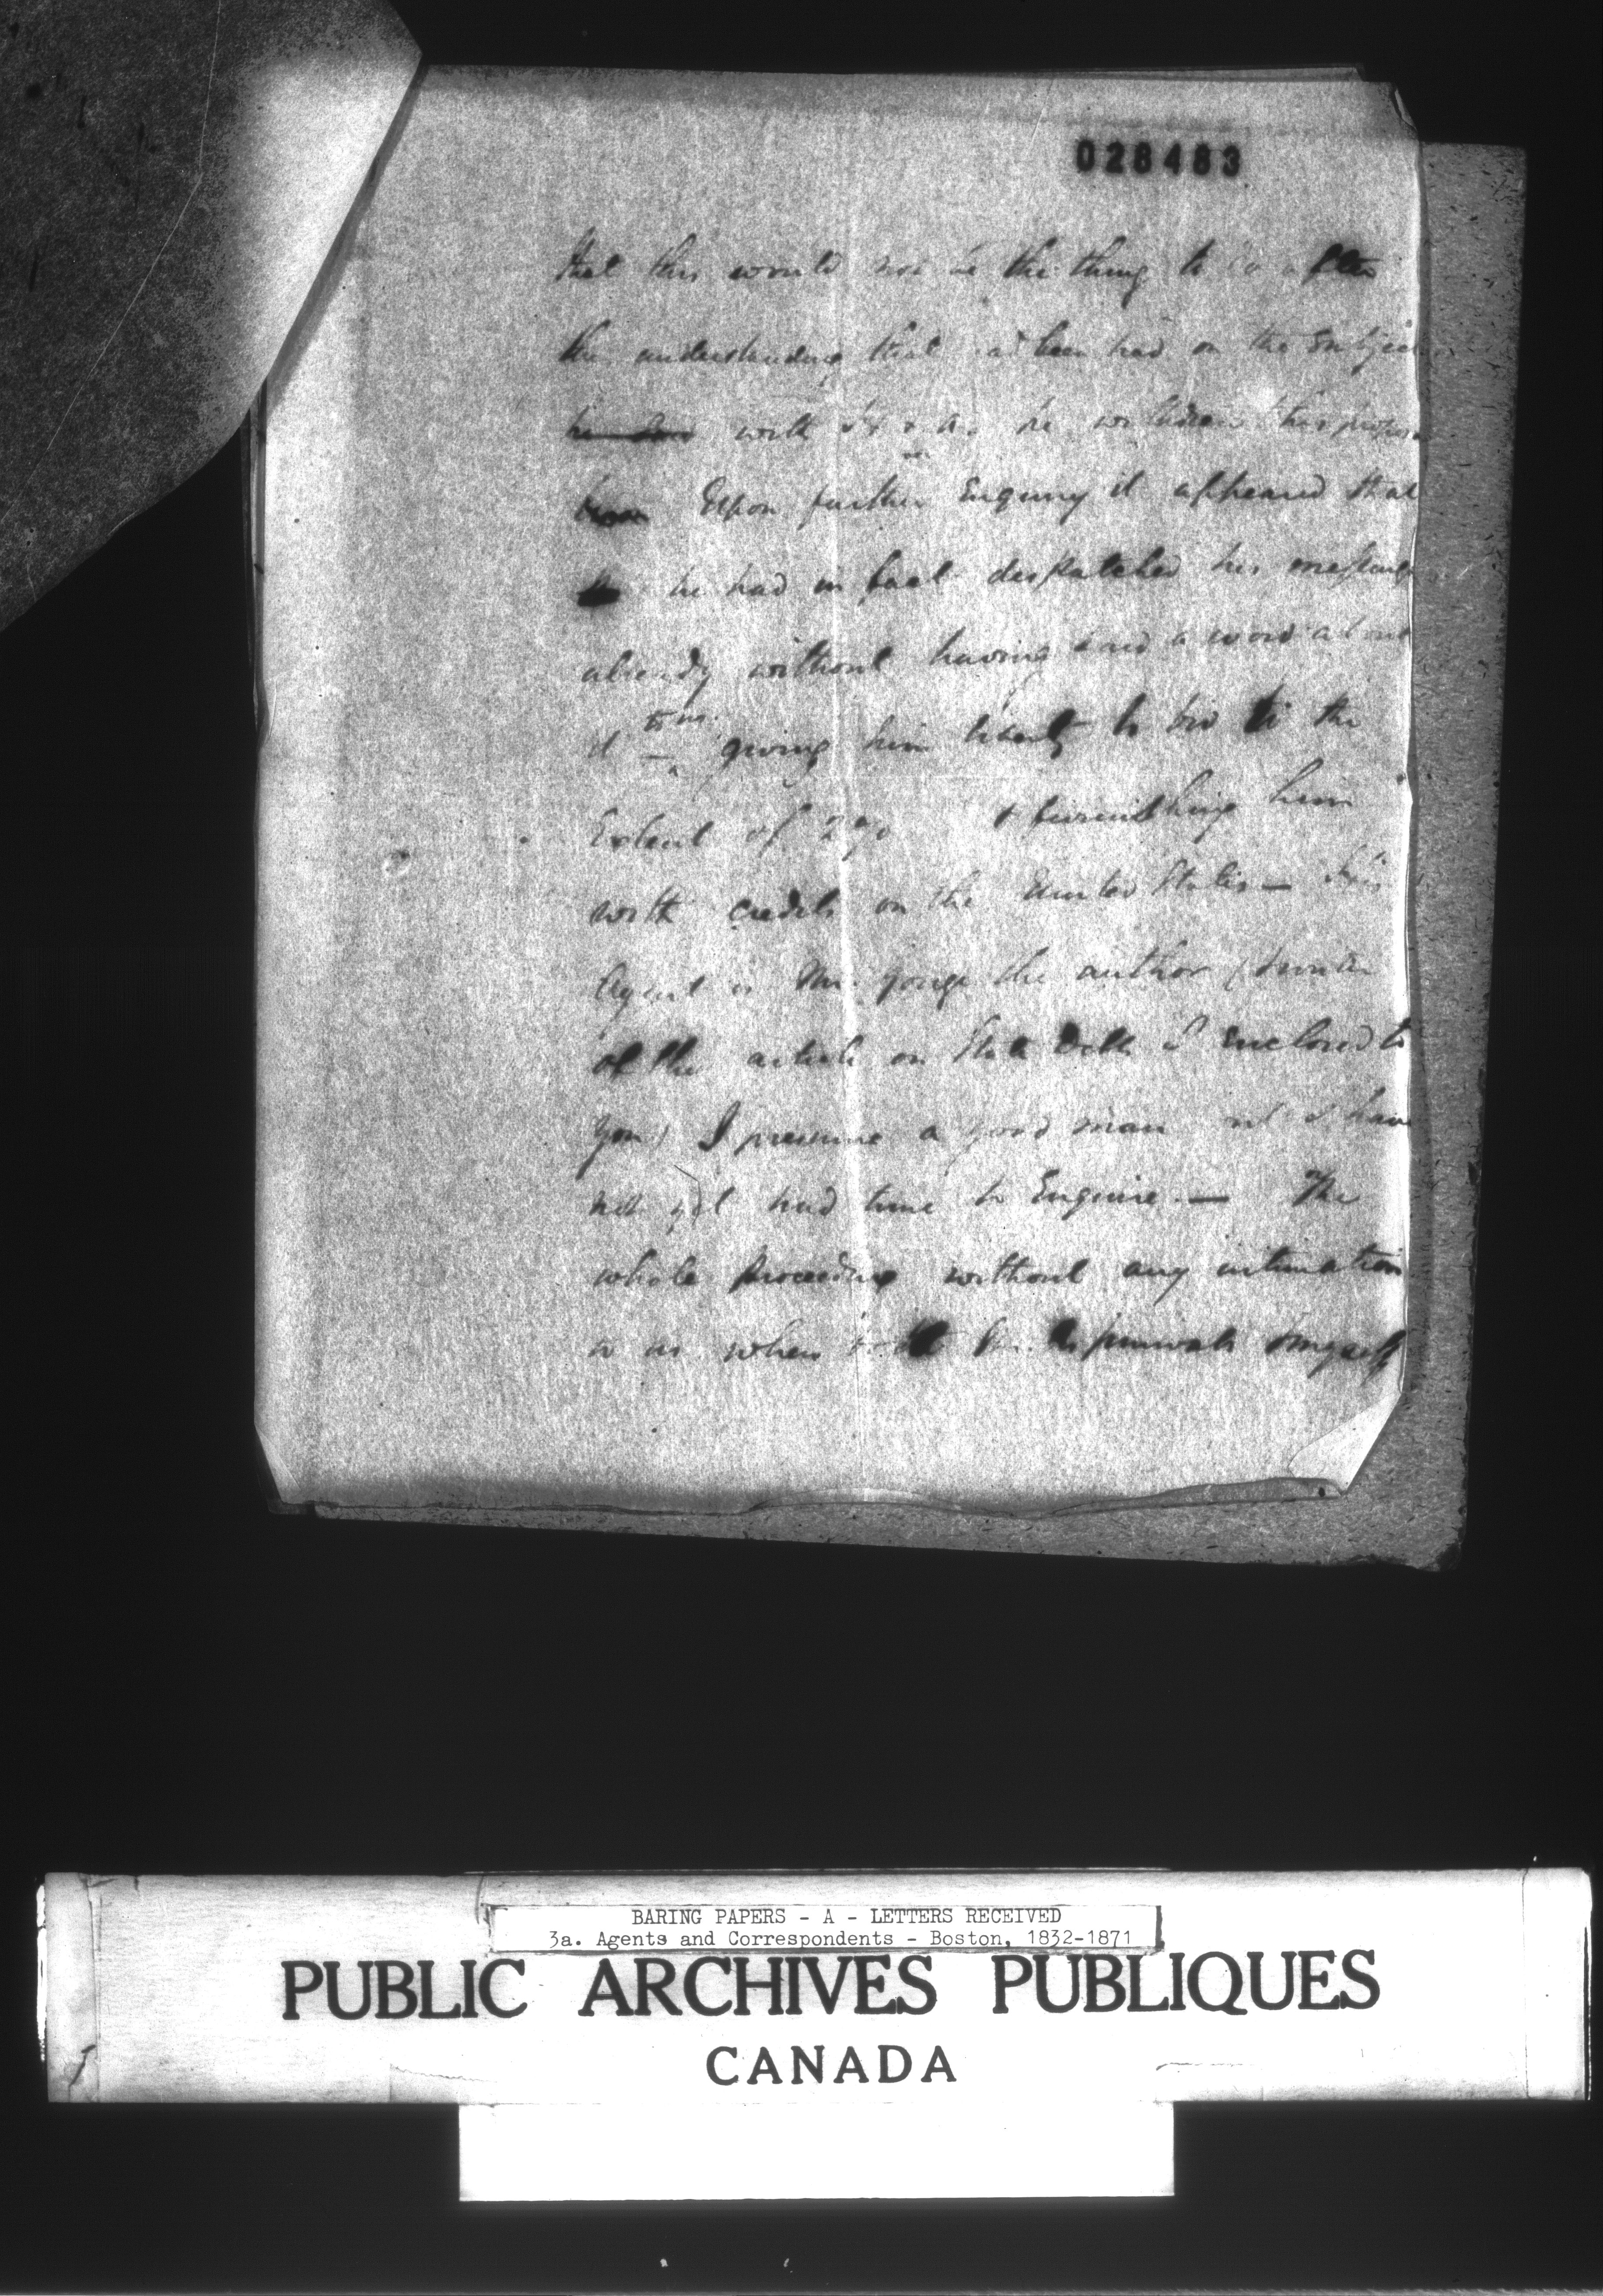 028483
that this would not be the thing to do after
the understanding that had been had on the subject
with he withdrew his
Upon further Enquiry it appeared that
he had in fact despatched his messenger
already without having said a word about
it to us giving him liberty to bid to the
Extent of 2% & furnishing him
with credits on the United States — This
Agent is Mr. Yonge the author
of the article on State Debts I enclosed to
you) I presume a good man but I have
not yet had time to Enquire — The
whole proceeding without any intimation
to us when myself
BARING PAPERS - A - LETTERS RECEIVED
3a. Agents and Correspondents - Boston, 1832-1871
PUBLIC ARCHIVES PUBLIQUES
CANADA